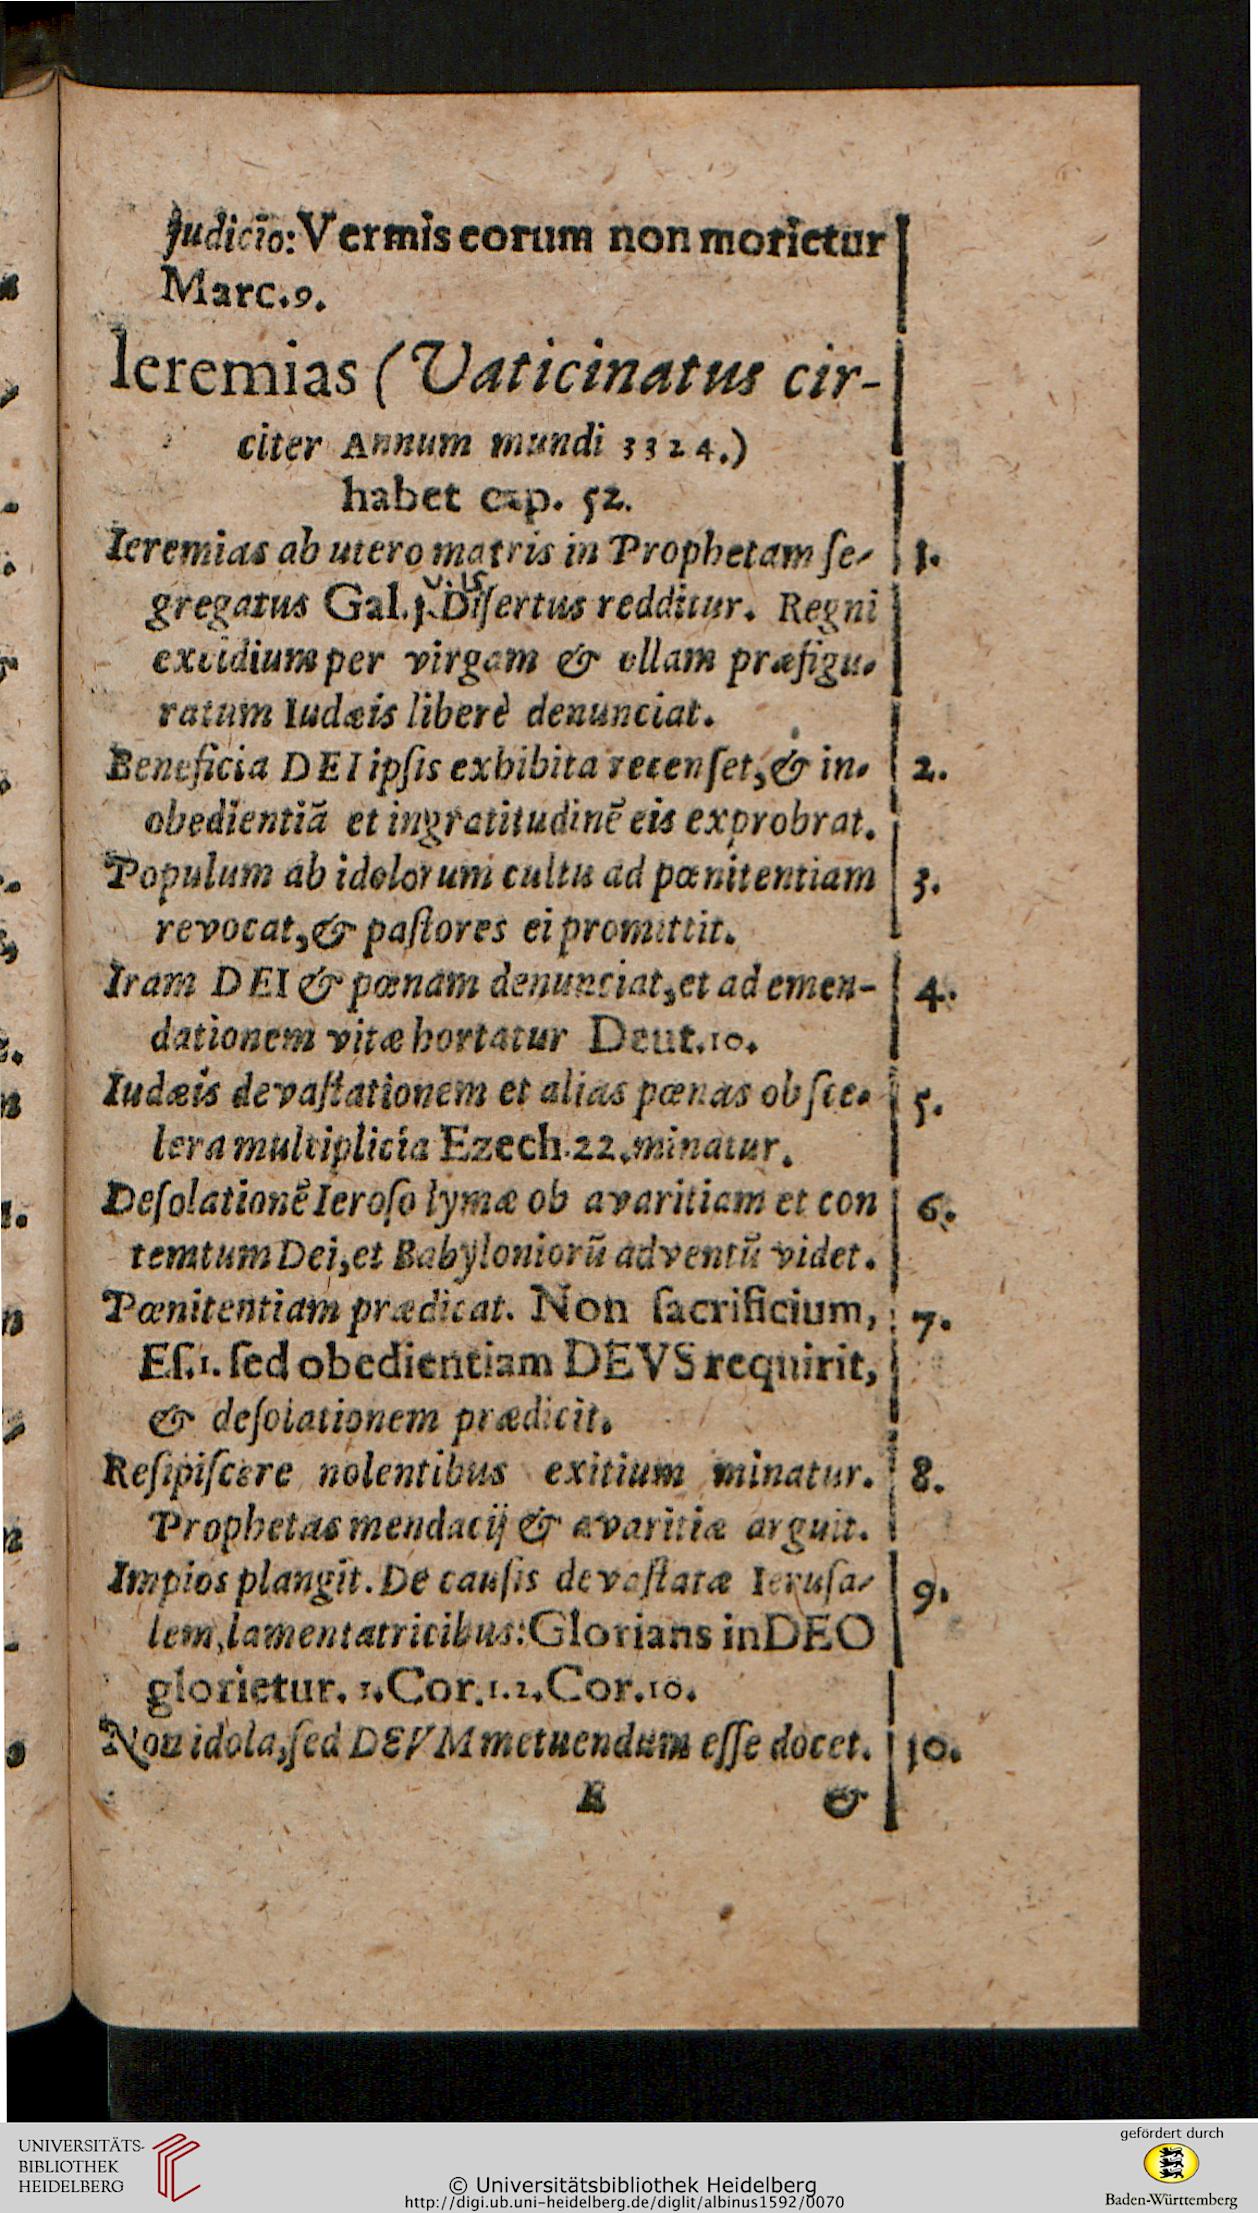 Judicio: Vermis eorum non morietur
Marc. 9.
Ieremias (Vaticinatus cir-
citer Annum mundi 3324.)
habet cap. 52.
Ieremias ab utero matris in Prophetam ſe- 1.
v. 15
gregatus Gal. 1. Diſertus redditur. Regni
excidium per virgam & ollam præfigu-
ratum Iudæis liberè denunciat.
Beneficia DEI ipſis exhibita recenſet, & in- 2.
obedientiã et ingratitudinẽ eis exprobrat.
Populum ab idolorum cultu ad pœnitentiam 3.
revocat, & paſtores ei promittit.
Iram DEI & pœnam denunciat, et ad emen- 4.
dationem vitæ hortatur Deut. 10.
Iudæis devaſtationem et alias pœnas ob ſce- 5.
lera multiplicia Ezech. 22. minatur.
Deſolationẽ Ieroſolymæ ob avaritiam et con 6.
temtum Dei, et Babyloniorũ adventũ videt.
Pœnitentiam prædicat. Non ſacrificium, 7.
Eſ. 1. ſed obedientiam DEVS requirit,
& deſolationem prædicit.
Reſipiſcere nolentibus exitium minatur. 8.
Prophetas mendacij & avaritiæ arguit.
Impios plangit. De cauſis devaſtatæ Ieruſa- 9.
lem, lamentatricibus: Glorians in DEO
glorietur. 1. Cor. 1. 2. Cor. 10.
Non idola, ſed DEVM metuendum eſſe docet. 10.
E &
UNIVERSITÄTS-
BIBLIOTHEK
HEIDELBERG
© Universitätsbibliothek Heidelberg
http://digi.ub.uni-heidelberg.de/diglit/albinus1592/0070
gefördert durch
Baden-Württemberg